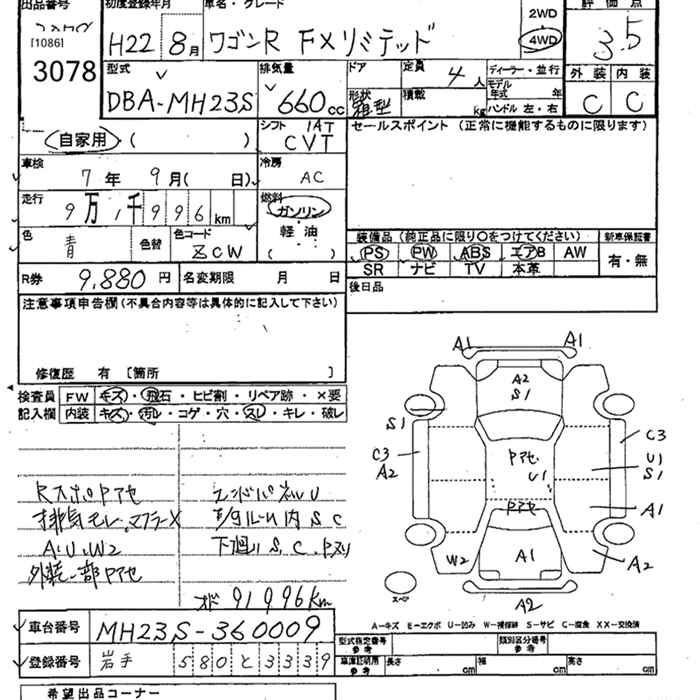 出品番号 初度登録年月 車名・グレード 評価点
[1086] H22 8月 ワゴンR FXリミテッド 2WD 4WD 3.5
3078
型式 排気量 ドア 定員 4人 ディーラー・並行 外装 内装
DBA-MH23S 660cc 形状 積載 kg モデル年式 年 C C
箱型 ハンドル 左・右
自家用・( ) シフト IAT CVT セールスポイント (正常に機能するものに限ります)
車検 7年 9月( 日) 冷房 AC
走行 9万1千996km 燃料 ガソリン
軽油
( )
色 青 色替 色コード ZCW
装備品 (純正品に限り○をつけてください) 新車保証書
PS PW ABS エアB AW 有・無
SR ナビ TV 本革
R券 9,880円 名変期限 月 日 後日品
注意事項申告欄 (不具合内容等は具体的に記入して下さい)
修復歴 有 [箇所 ]
検査員 FW キズ・飛石・ヒビ割・リペア跡・×要
記入欄 内装 キズ・汚れ・コゲ・穴・スレ・キレ・破レ
A1 A1
A2
S1
S1
C3
A2
Pアセ
U1
C3
U1
S1
A1
Pアセ
W2 A1 A2
スペア
A2
RスポPアセ
排気モレ、マフラーX 内SC
A、U、W2 下廻りS、C、Pスリ
外装一部Pアセ
オド 91996Km
A-キズ E-エクボ U-凹み W-補修跡 S-サビ C-腐食 XX-交換済
車台番号 MH23S-360009
型式指定番号 参考 類別区分番号 参考
登録番号 岩手 580 と 3339
車庫証明用 参考 長さ cm 幅 cm 高さ cm
希望出品コーナー